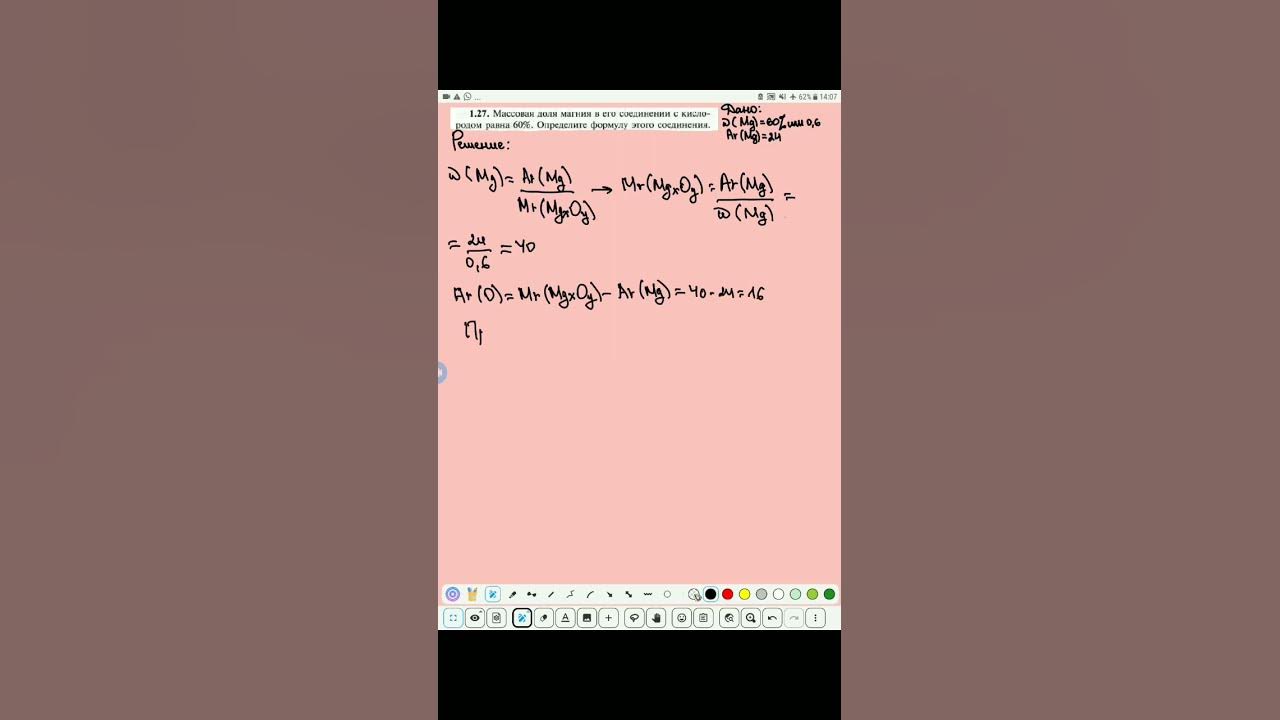 ... 62% 14:07
1.27. Массовая доля магния в его соединении с кисло-
родом равна 60%. Определите формулу этого соединения.
Дано:
ω(Mg)=60% или 0,6
Ar(Mg)=24
Решение:
ω(Mg)= Ar(Mg) / Mr(MgxOy) → Mr(MgxOy)= Ar(Mg) / ω(Mg) =
= 24 / 0,6 = 40
Ar(O)=Mr(MgxOy)-Ar(Mg)=40-24=16
Пр